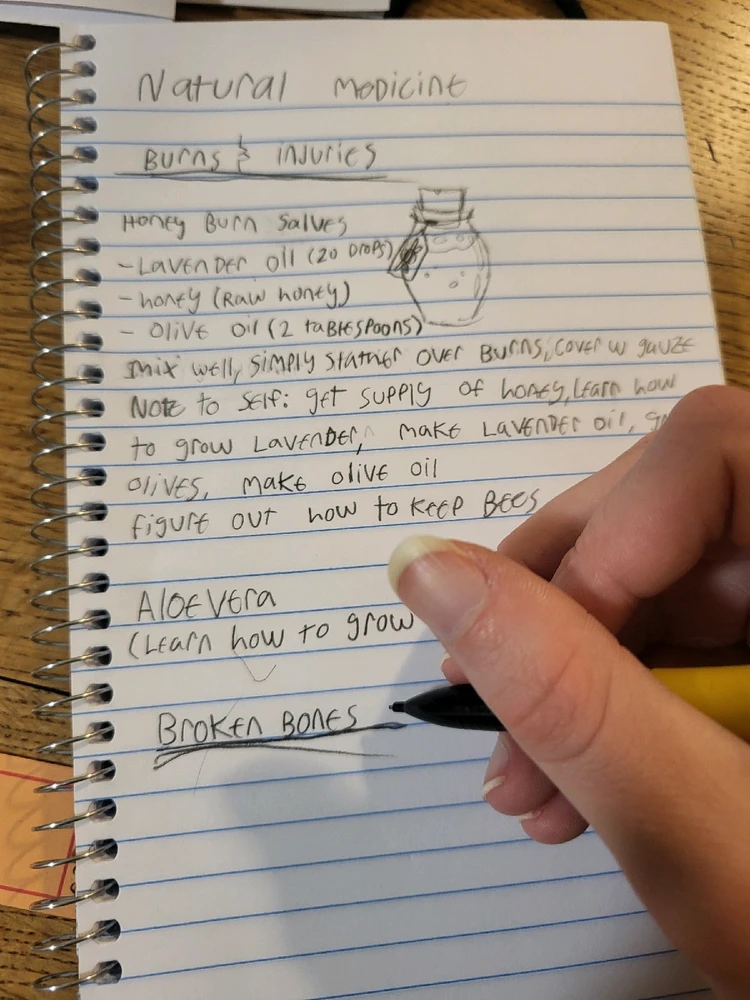 Natural medicine
Burns & injuries
Honey Burn Salves
- Lavender oil (20 Drops)
- honey (Raw honey)
- olive oil (2 tablespoons)
mix well, simply slather over Burns, cover w gauze
Note to self: get supply of honey, learn how
to grow Lavender, make Lavender oil,
olives, make olive oil
figure out how to keep Bees
Aloe Vera
(Learn how to grow
Broken Bones